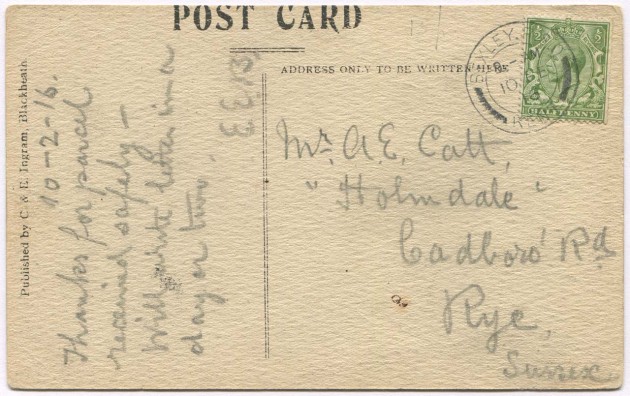 POST CARD
ADDRESS ONLY TO BE WRITTEN HERE
Published by C. & E. Ingram, Blackheath.
10-2-16.
Thanks for parcel
received safely –
will write letter in a
day or two.
E.E.B.
Mr. A.E. Catt,
"Holmdale"
Cadboro' Rd
Rye,
Sussex
HALFPENNY